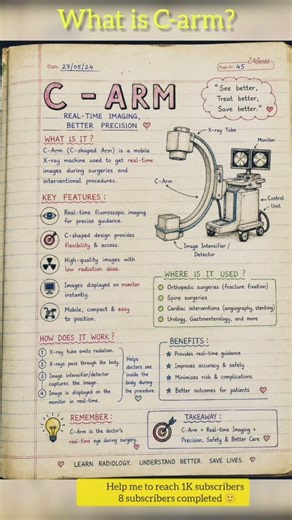 What is C-arm?
Date: 27/05/24
Page No. 45
C - ARM
REAL-TIME IMAGING,
BETTER PRECISION
"See better,
Treat better,
Save better."
WHAT IS IT?
C-Arm (C-shaped Arm) is a mobile
X-ray machine used to get real-time
images during surgeries and
interventional procedures.
X-ray Tube
Monitor
C-Arm
Control
Unit
Image Intensifier /
Detector
KEY FEATURES:
Real-time fluoroscopic imaging
for precise guidance.
C-shaped design provides
flexibility & access.
High-quality images with
low radiation dose.
Images displayed on monitor
instantly.
Mobile, compact & easy
to position.
WHERE IS IT USED?
Orthopedic surgeries (fracture fixation)
Spine surgeries
Cardiac interventions (angiography, stenting)
Urology, Gastroenterology, and more
HOW DOES IT WORK?
1 X-ray tube emits radiation.
2 X-rays pass through the body.
3 Image intensifier/detector
captures the image.
4 Image is displayed on the
monitor in real-time.
Helps
doctors see
inside the
body during
the procedure.
BENEFITS:
Provides real-time guidance
Improves accuracy & safety
Minimizes risk & complications
Better outcomes for patients
REMEMBER:
C-Arm is the doctor's
real-time eye during surgery.
TAKEAWAY:
C-Arm + Real-time Imaging =
Precision, Safety & Better Care
LEARN RADIOLOGY. UNDERSTAND BETTER. SAVE LIVES.
Help me to reach 1K subscribers
8 subscribers completed 🙂